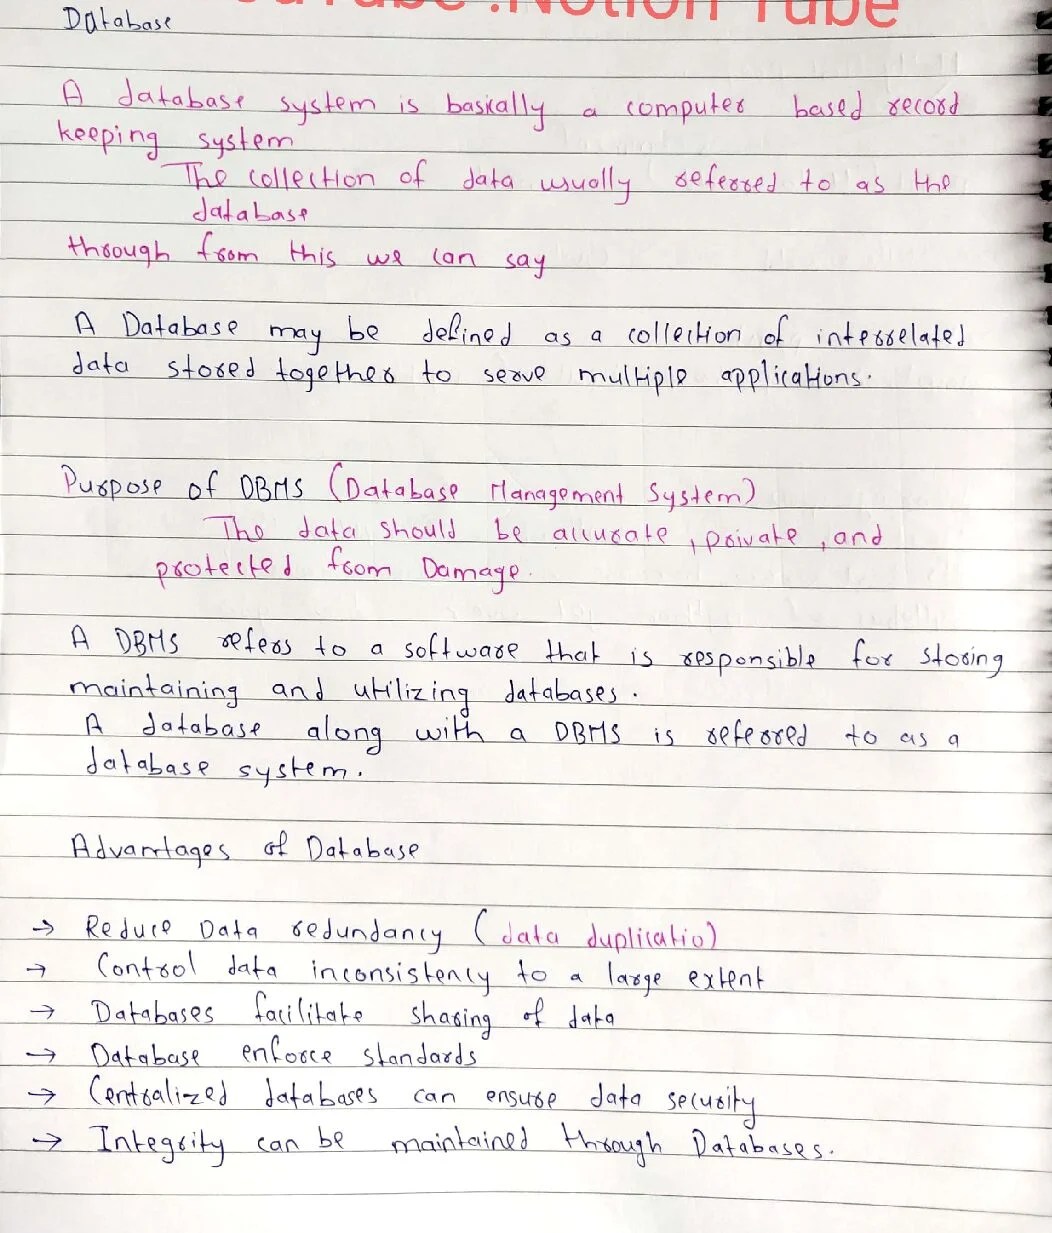 YouTube :Notion Tube
Database
A database system is basically a computer based record
keeping system
The collection of data usually referred to as the
database
through from this we can say
A Database may be defined as a collection of interrelated
data stored together to serve multiple applications.
Purpose of DBMS (Database Management System)
The data should be accurate, private, and
protected from Damage.
A DBMS refers to a software that is responsible for storing
maintaining and utilizing databases.
A database along with a DBMS is referred to as a
database system.
Advantages of Database
→ Reduce Data redundancy (data duplicatio)
→ Control data inconsistency to a large extent
→ Databases facilitate sharing of data
→ Database enforce standards
→ Centralized databases can ensure data security
→ Integrity can be maintained through Databases.